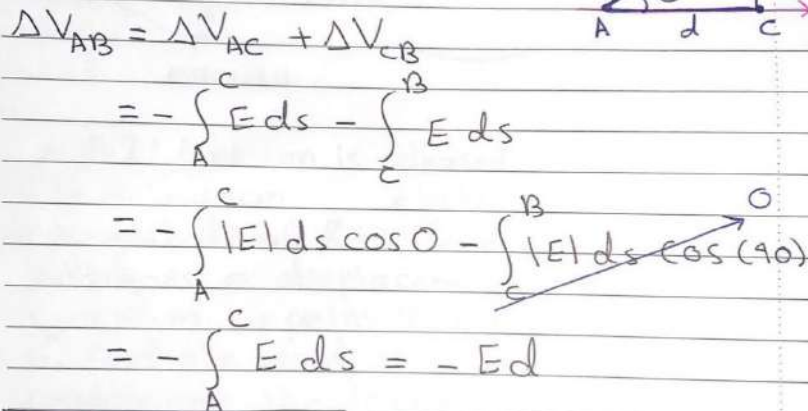 A d C
ΔV_AB = ΔV_AC + ΔV_CB
= - ∫_A^C E ds - ∫_C^B E ds
= - ∫_A^C |E| ds cos 0 - ∫_C^B |E| ds cos (90) 0
= - ∫_A^C E ds = - Ed